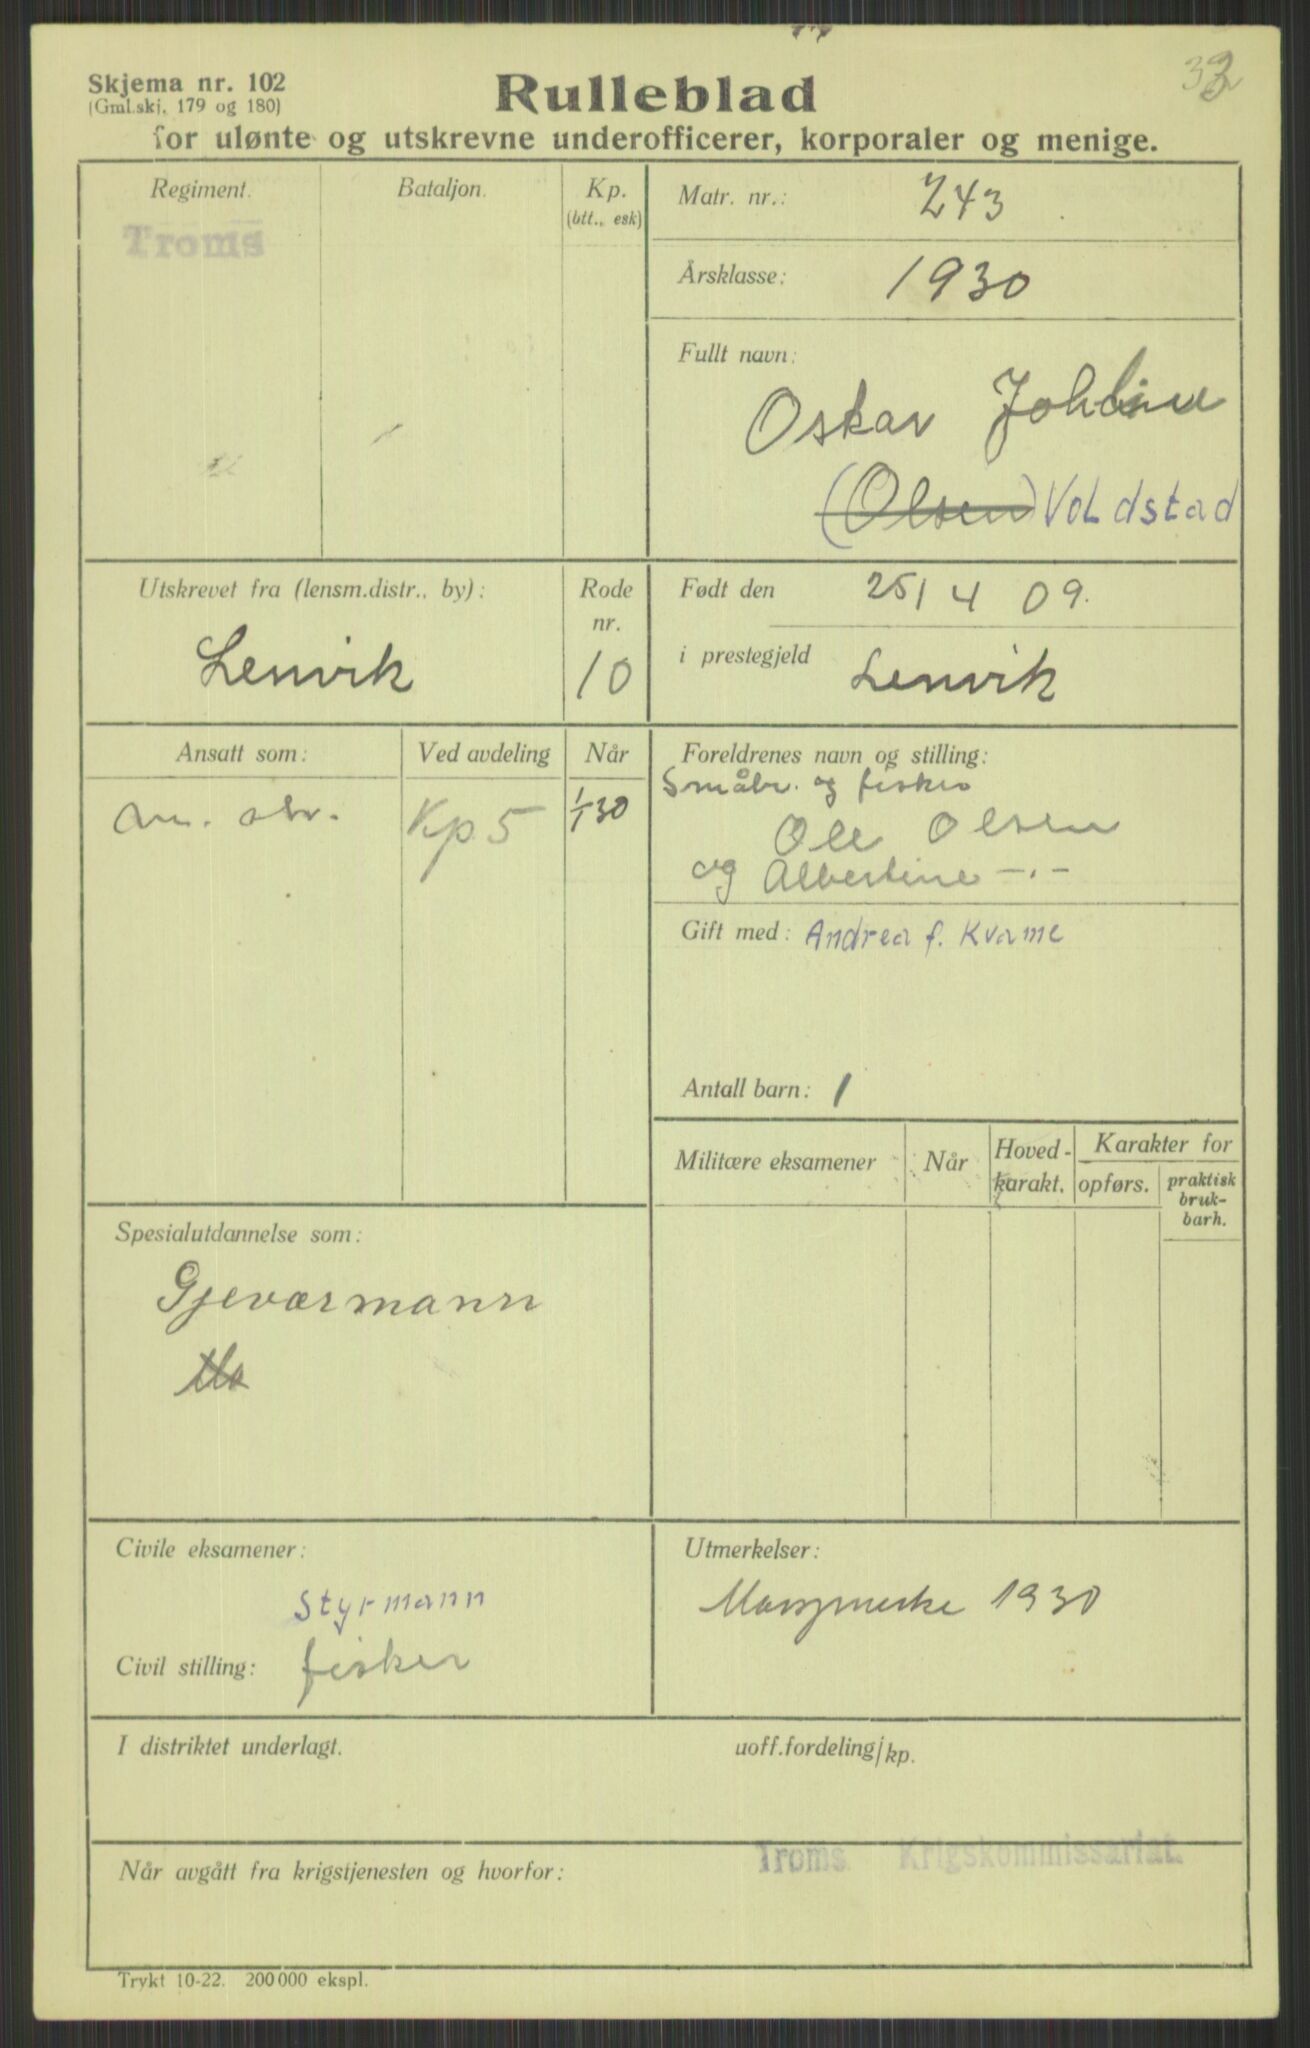 Skjema nr. 102
(Gml.skj. 179 og 180)
33
Rulleblad
for ulønte og utskrevne underofficerer, korporaler og menige.
Regiment.
Bataljon.
Kp.
(btt., esk)
Troms
Matr. nr.: 243
Årsklasse: 1930
Fullt navn:
Oskar
(Olsen) Voldstad
Utskrevet fra (lensm.distr., by):
Lenvik
Rode nr.
10
Født den 25/4 09.
i prestegjeld Lenvik
Ansatt som:
Ved avdeling
Når
Kp 5
1/1 30
Foreldrenes navn og stilling:
Småbr. og fisker
Ole Olsen
og Albertine -"-
Gift med: Andrea f. Kvame
Antall barn: 1
Militære eksamener
Når
Hoved-
karakt.
Karakter for
opførs.
praktisk
bruk-
barh.
Spesialutdannelse som:
Gjeværmann
Civile eksamener:
Styrmann
Civil stilling: fisker
Utmerkelser:
Marsjmerke 1930
I distriktet underlagt.
uoff.fordeling/kp.
Troms Krigskommissariat.
Når avgått fra krigstjenesten og hvorfor:
Trykt 10-22. 200 000 ekspl.